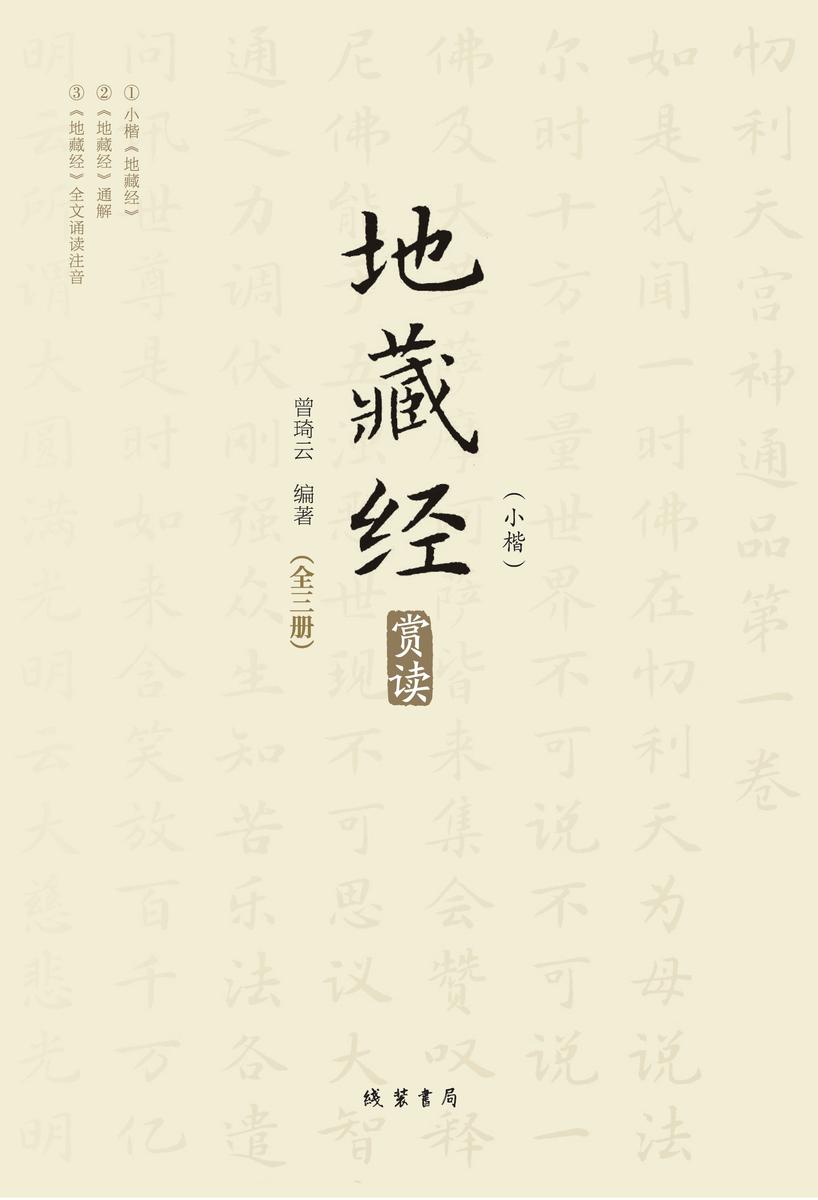 忉利天宫神通品第一卷
如是我闻一时佛在忉利天为母说法
尔时十方无量世界不可说不可说一
佛及大菩萨摩诃萨皆来集会赞叹释
尼佛能于五浊恶世现不可思议大智
通之力调伏刚强众生知苦乐法各遣
问讯世尊是时如来含笑放百千万亿
明云所谓大圆满光明云大慈悲光明
（小楷）
地藏经
赏读
曾琦云 编著
（全三册）
①小楷《地藏经》
②《地藏经》通解
③《地藏经》全文诵读注音
线装书局